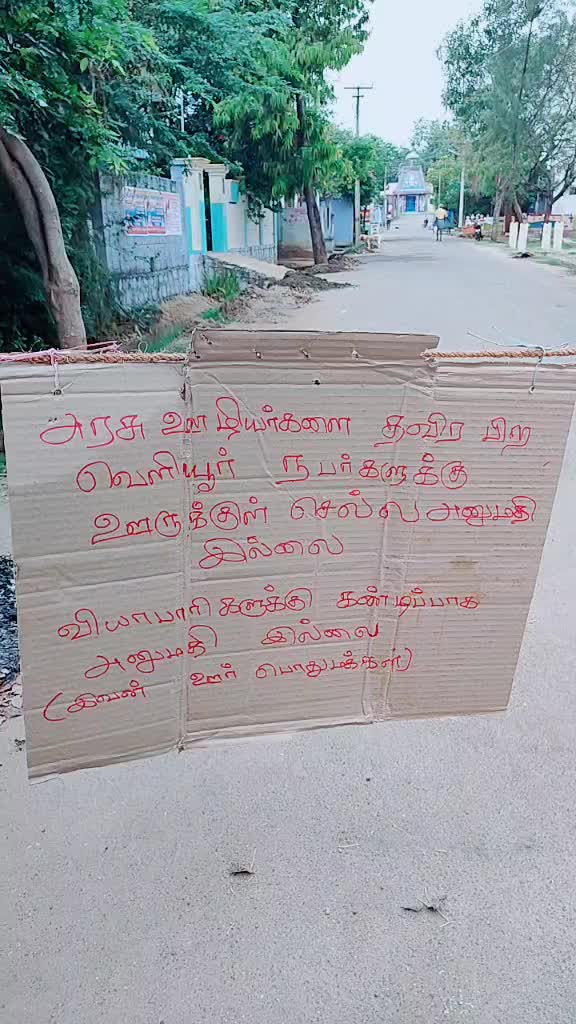 அரசு ஊழியர்களை தவிர பிற
வெளியூர் நபர்களுக்கு
ஊருக்குள் செல்ல அனுமதி
இல்லை
வியாபாரிகளுக்கு கண்டிப்பாக
அனுமதி இல்லை
(இவன் ஊர் பொதுமக்கள்)